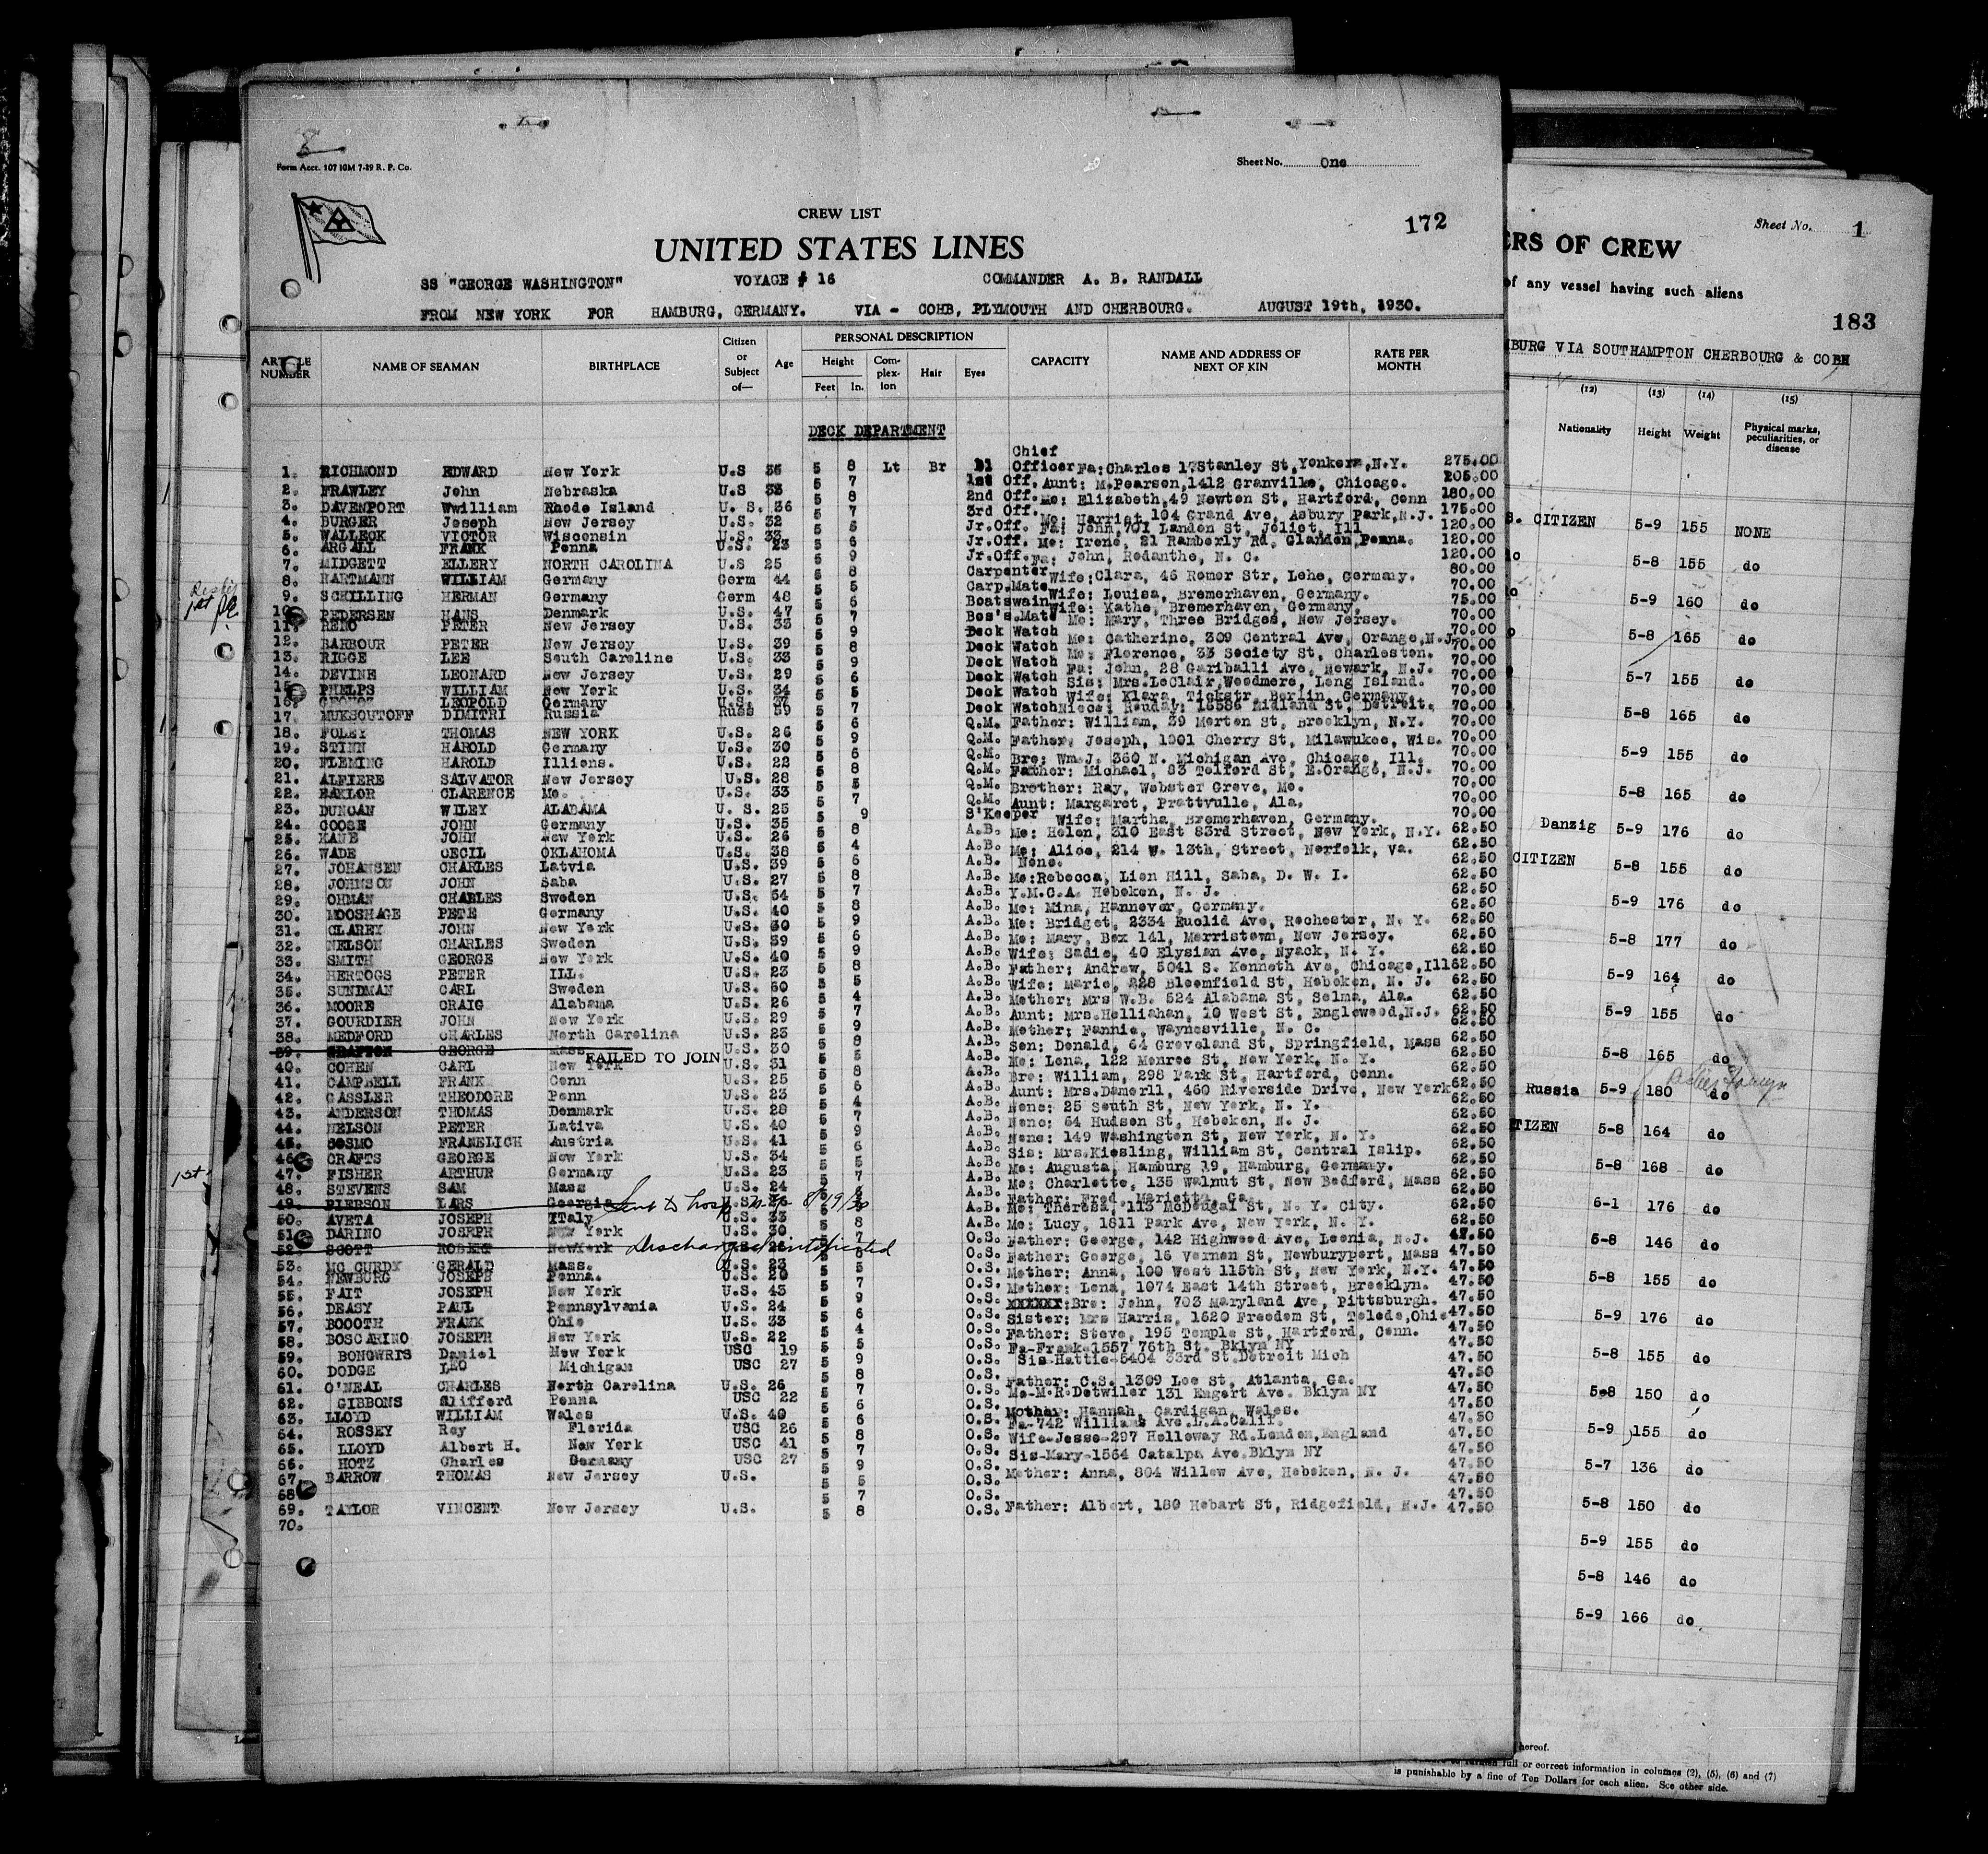 8
Form Acct. 107 10M 7-29 R. P. Co.
Sheet No. One
CREW LIST
172
UNITED STATES LINES
SS "GEORGE WASHINGTON" VOYAGE # 16 COMMANDER A. B. RANDALL
FROM NEW YORK FOR HAMBURG, GERMANY. VIA - COHB, PLYMOUTH AND CHERBOURG. AUGUST 19th, 1930.
ARTICLE NUMBER NAME OF SEAMAN BIRTHPLACE Citizen or Subject of— Age PERSONAL DESCRIPTION Height Feet In. Complexion Hair Eyes CAPACITY NAME AND ADDRESS OF NEXT OF KIN RATE PER MONTH
DECK DEPARTMENT
Chief
1. RICHMOND EDWARD New York U.S 36 5 8 Lt Br Bl Officer Fa: Charles 17 Stanley St, Yonkers, N.Y. 275.00
2. FRAWLEY John Nebraska U.S 33 5 7 1st Off. Aunt: M.Pearson, 1412 Granville, Chicago. 205.00
3. DAVENPORT Wwilliam Rhode Island U. S. 36 5 8 2nd Off. Mo: Elizabeth, 49 Newton St, Hartford, Conn 180.00
4. BURGER Joseph New Jersey U.S. 32 5 7 3rd Off. Mo: Harriet 104 Grand Ave, Asbury Park, N.J. 175.00
5. WALLECK VICTOR Wisconsin U.S. 33 5 5 Jr.Off. Fa: John, 701 Landon St, Joliet, Ill 120.00
6. ARGALL FRANK Penna U.S. 23 5 6 Jr.Off. Mo: Irene, 21 Ramberly Rd, Glandon, Penna. 120.00
7. MIDGETT ELLERY NORTH CAROLINA U.S 25 5 9 Jr.Off. Fa: John, Rodanthe, N. C. 120.00
8. HARTMANN WILLIAM Germany Germ 44 5 8 Carpenter Wife: Clara, 46 Romer Str, Lehe, Germany. 80.00
9. SCHILLING HERMAN Germany Germ 48 5 5 Carp.Mate Wife: Louisa, Bremerhaven, Germany. 70.00
10. PEDERSEN HANS Denmark U.S. 47 5 6 Boatswain Wife: Kathe, Bremerhaven, Germany, 75.00
11. RENO PETER New Jersey U.S. 33 5 7 Bos's.Mate Mo: Mary, Three Bridges, New Jersey. 70.00
12. BARBOUR PETER New Jersey U.S. 39 5 9 Deck Watch Mo: Catherine, 309 Central Ave, Orange, N.J. 70.00
13. RIGGE LEE South Caroline U.S. 33 5 8 Deck Watch Mo: Florence, 33 Society St, Charleston. 70.00
14. DEVINE LEONARD New Jersey U.S. 29 5 9 Deck Watch Fa: John, 28 Gariballi Ave, Newark, N.J. 70.00
15. PHELPS WILLIAM New York U.S. 34 5 6 Deck Watch Sis: Mrs.LeClair, Woodmere, Long Island. 70.00
16. LEOPOLD Germany U.S. 37 5 5 Deck Watch Wife: Klara, Tickstr, Berlin, Germany. 70.00
17. MUKSOUTOFF DIMITRI Russia Russ 59 5 7 Deck Watch Niece: Rouday: 16586 Midland St, Detroit. 70.00
18. FOLEY THOMAS NEW YORK U.S. 26 5 6 Q.M. Father: William, 39 Morton St, Brooklyn, N.Y. 70.00
19. STINN HAROLD Germany U.S. 30 5 9 Q.M. Father, Joseph, 1901 Cherry St, Milawukee, Wis. 70.00
20. FLEMING HAROLD Illions. U.S. 22 5 6 Q.M. Bro: Wm.J. 360 N. Michigan Ave, Chicago, Ill. 70.00
21. ALFIERE SALVATOR New Jersey U.S. 28 5 8 Q.M. Father: Michael, 83 Telford St, E.Orange, N.J. 70.00
22. BAELOR CLARENCE Mo. U.S. 33 5 5 Q.M. Brother: Ray, Webster Grove, Mo. 70.00
23. DUNCAN WILEY ALABAMA U. S. 25 5 7 Q.M. Aunt: Margaret, Prattvulle, Ala. 70.00
24. GOOSE JOHN Germany U.S. 35 5 9 S'Keeper Wife: Martha, Bremerhaven, Germany. 70.00
25. KANE JOHN New York U.S. 26 5 8 A.B. Mo: Helen, 310 East 83rd Street, New York, N.Y. 62.50
26. WADE CECIL OKLAHOMA U.S. 38 5 4 A.B. Mo: Alice, 214 W. 13th, Street, Norfolk, Va. 62.50
27. JOHANSEN CHARLES Latvia U.S. 39 5 6 A.B. None. 62.50
28. JOHNSON JOHN Saba U.S. 27 5 8 A.B. Mo: Rebecca, Lion Hill, Saba, D. W. I. 62.50
29. OHMAN CHARLES Sweden U.S. 54 5 7 A.B. Y.M.C.A. Hoboken, N. J. 62.50
30. MOOSHAGE PETE Germany U.S. 40 5 8 A.B. Mo: Mina, Hannover, Germany. 62.50
31. CLAREY JOHN New York U.S. 30 5 9 A.B. Mo: Bridget, 2334 Euclid Ave, Rochester, N. Y. 62.50
32. NELSON CHARLES Sweden U.S. 39 5 6 A.B. Mo: Mary, Box 141, Morristown, New Jersey. 62.50
33. SMITH GEORGE New York U.S. 40 5 9 A.B. Wife: Sadie, 40 Elysian Ave, Nyack, N. Y. 62.50
34. HERTOGS PETER ILL. U.S. 23 5 8 A.B. Father: Andrew, 5041 S. Kenneth Ave, Chicago, Ill 62.50
35. SUNDMAN CARL Sweden U.S. 50 5 5 A.B. Wife: Marie, 228 Bloomfield St, Hoboken, N. J. 62.50
36. MOORE CRAIG Alabama U.S. 26 5 4 A.B. Mother: Mrs W.B. 524 Alabama St, Selma, Ala. 62.50
37. GOURDIER JOHN New York U.S. 29 5 7 A.B. Aunt: Mrs.Hollishan, 10 West St, Englewood, N.J. 62.50
38. MEDFORD CHARLES North Carolina U.S. 23 5 9 A.B. Mother: Fannie, Waynesville, N. C. 62.50
39. GEORGE Mass FAILED TO JOIN U.S. 30 5 8 A.B. Son: Donald, 64 Groveland St, Springfield, Mass 62.50
40. COHEN CARL New York U.S. 31 5 5 A.B. Mo: Lena, 122 Monroe St, New York, N. Y. 62.50
41. CAMPBELL FRANK Conn U.S. 25 5 8 A.B. Bro: William, 298 Park St, Hartford, Conn. 62.50
42. GASSLER THEODORE Penn U.S. 23 5 6 A.B. Aunt: Mrs.Damerll, 460 Riverside Drive, New York 62.50
43. ANDERSON THOMAS Denmark U.S. 28 5 4 A.B. None: 25 South St, New York, N. Y. 62.50
44. NELSON PETER Lativa U.S. 40 5 7 A.B. None: 64 Hudson St, Hoboken, N. J. 62.50
45. COSMO FRANELICH Austria U.S. 41 5 9 A.B. None: 149 Washington St, New York, N. Y. 62.50
46. CRAFTS GEORGE New York U.S. 34 5 6 A.B. Sis: Mrs.Kiesling, William St, Central Islip. 62.50
47. FISHER ARTHUR Germany U.S. 23 5 5 A.B. Mo: Augusta, Hamburg 19, Hamburg, Germany. 62.50
48. STEVENS SAM Mass U.S. 24 5 7 A.B. Mo: Charlotte, 135 Walnut St, New Bedford, Mass 62.50
49. PIERSON LARS Georgia Sent to hosp. N.Y. 8/19/30 A.B. Father: Fred, Marietta, Ga. 62.50
50. AVETA JOSEPH ITaly U.S. 33 A.B. Mo: Theresa, 113 McDougal St, N. Y. City. 62.50
51. DARINO JOSEPH New York U.S. 30 5 8 A.B. Mo: Lucy, 1811 Park Ave, New York, N. Y. 62.50
52. SCOTT ROBERT NewYork Discharged intoxicated 5 7 O.S. Father: George, 142 Highwood Ave, Leonia, N.J. 47.50
53. MC CURDY GERALD Mass. U.S. 23 O.S. Father: George, 16 Vernon St, Newburyport, Mass 47.50
54. NEWBURG JOSEPH Penna. U.S. 20 5 5 O.S. Mother: Anna, 100 West 115th St, New York, N.Y. 47.50
55. FAIT JOSEPH New York U.S. 43 5 7 O.S. Mother: Lena, 1074 East 14th Street, Brooklyn. 47.50
56. DEASY PAUL Pennsylvania U.S. 24 5 9 O.S. XXXXXX:Bro: John, 703 Maryland Ave, Pittsburgh. 47.50
57. BOOOTH FRANK Ohio U.S. 33 5 6 O.S. Sister: Mrs Harris, 1620 Freedom St, Toledo, Ohio 47.50
58. BOSCARINO JOSEPH New York U.S. 22 5 4 O.S. Father: Steve, 195 Temple St, Hartford, Conn. 47.50
59. BONGWRIS Daniel New York USC 19 5 5 O.S. Fa-Frank-1557 75th St. Bklyn NY 47.50
60. DODGE LEO Michigan USC 27 5 9 O.S. Sis-Hattie-5404 33rd St.Detroit Mich 47.50
61. O'NEAL CHARLES North Carolina U.S. 26 5 8 O.S. Father: C.S. 1309 Lee St, Atlanta, Ga. 47.50
62. GIBBONS Clifford Penna USC 22 5 7 O.S. Mo-M.R.Detwiler 131 Engert Ave. Bklyn NY 47.50
63. LLOYD WILLIAM Wales U.S. 40 5 6 O.S. Mother: Hannah, Cardigan, Wales. 47.50
64. ROSSEY Roy Florida USC 26 5 6 O.S. Fa-742 Williams Ave.L.A.Calif. 47.50
65. LLOYD Albert H. New York USC 41 5 8 O.S. Wife-Jesse-297 Holloway Rd.London, England 47.50
66. HOTZ Charles Germany USC 27 5 7 O.S. Sis-Mary-1564 Catalpa Ave.Bklyn NY 47.50
67. BARROW THOMAS New Jersey U.S. 5 9 O.S. Mother: Anna, 804 Willow Ave, Hoboken, N. J. 47.50
68. 5 5 O.S. 47.50
69. TAYLOR VINCENT New Jersey U.S. 5 7 O.S. Father: Albert, 180 Hobart St, Ridgefield, N.J. 47.50
70. 5 8 O.S. 47.50
1st
1st
Sheet No. 1
ERS OF CREW
of any vessel having such aliens
183
MBURG VIA SOUTHAMPTON CHERBOURG & COBH
(12) (13) (14) (15)
Nationality Height Weight Physical marks, peculiarities, or disease
S. CITIZEN 5-9 155 NONE
do 5-8 155 do
5-9 160 do
5-8 165 do
5-7 155 do
5-8 165 do
5-9 155 do
5-8 165 do
Danzig 5-9 176 do
CITIZEN 5-8 155 do
5-9 176 do
5-8 177 do
5-9 164 do
5-9 155 do
5-8 165 do
Russia 5-9 180 do
TIZEN 5-8 164 do
5-8 168 do
6-1 176 do
5-8 146 do
5-8 155 do
5-9 176 do
5-8 155 do
5-8 150 do
5-9 155 do
5-7 136 do
5-8 150 do
5-9 155 do
5-8 146 do
5-9 166 do
hereof.
full or correct information in columns (2), (5), (6) and (7)
is punishable by a fine of Ten Dollars for each alien. See other side.